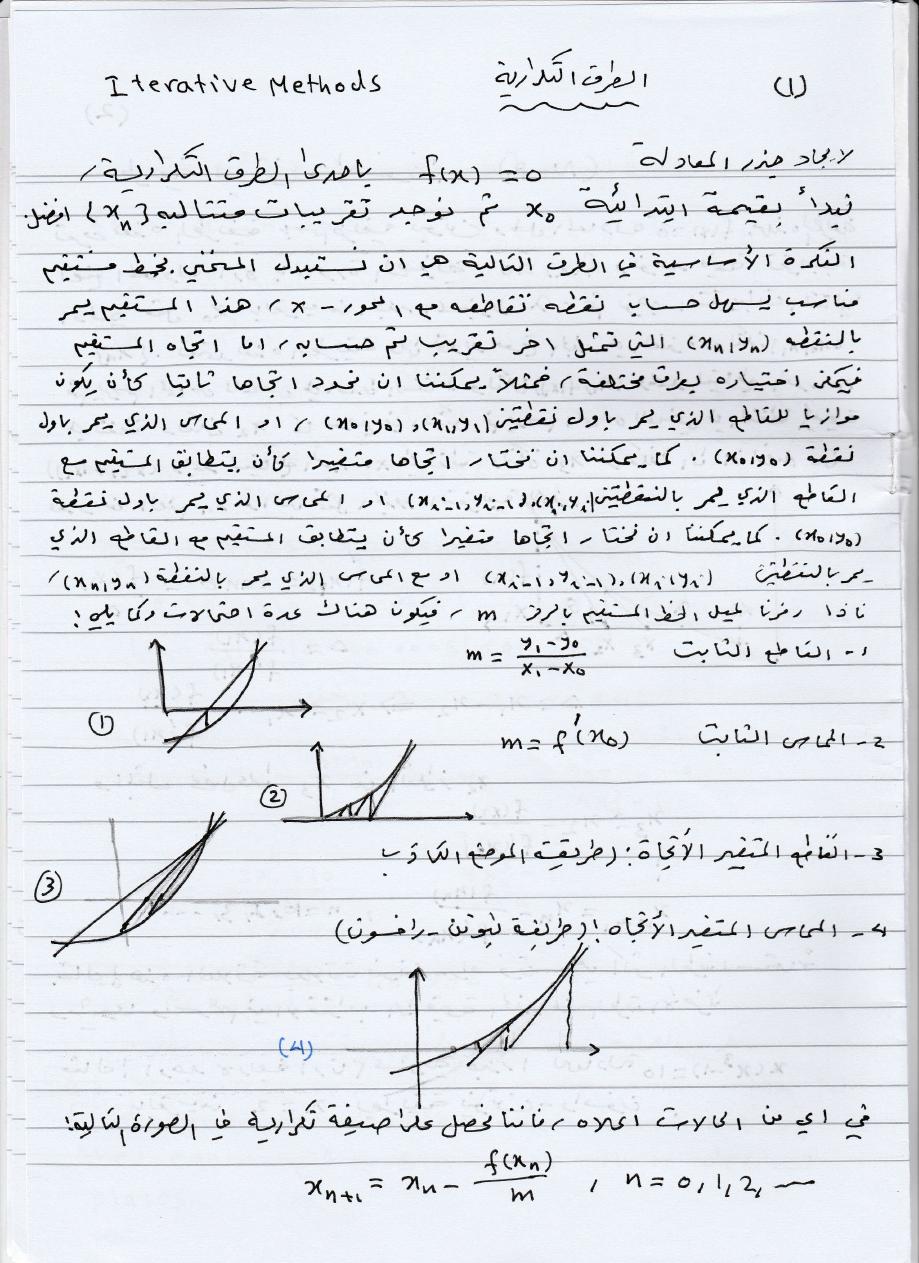 (1) الطرق التكرارية Iterative Methods
لايجاد جذر المعادلة f(x) = 0 باحدى الطرق التكرارية،
نبدأ بقيمة ابتدائية x₀ ثم نوجد تقريبات متتاليه {xₙ} افضل.
الفكرة الأساسية في الطرق التالية هي ان نستبدل المنحني بخط مستقيم
مناسب يسهل حساب نقطه تقاطعه مع المحور-x، هذا المستقيم يمر
بالنقطه (xₙ,yₙ) التي تمثل اخر تقريب تم حسابه، اما اتجاه المستقيم
فيمكن اختياره بطرق مختلفة، فمثلاً يمكننا ان نحدد اتجاها ثابتا كأن يكون
موازيا للقاطع الذي يمر باول نقطتين (x₁,y₁)،(x₀,y₀)، او المماس الذي يمر باول
نقطة (x₀,y₀). كما يمكننا ان نختار اتجاها متغيرا كأن يتطابق المستقيم مع
القاطع الذي يمر بالنقطتين (xᵢ,yᵢ)،(xᵢ₋₁,yᵢ₋₁) او المماس الذي يمر باول نقطة
(x₀,y₀). كما يمكننا ان نختار اتجاها متغيرا كأن يتطابق المستقيم مع القاطع الذي
يمر بالنقطتين (xᵢ,yᵢ)،(xᵢ₋₁,yᵢ₋₁) او مع المماس الذي يمر بالنقطة (xₙ,yₙ)،
فاذا رمزنا لميل الخط المستقيم بالرمز m، فيكون هناك عدة احتمالات وكما يلي:
1- القاطع الثابت m = (y₁-y₀)/(x₁-x₀)
①
2- المماس الثابت m = f'(x₀)
②
3- القاطع المتغير الأتجاة: (طريقة الموضع الكاذب
③
4- المماس المتغير الأتجاه: (طريقة نيوتن-رافسون)
(4)
في اي من الحالات اعلاه، فاننا نحصل على صيغة تكرارية في الصورة التالية:
xₙ₊₁ = xₙ - f(xₙ)/m , n = 0,1,2, —